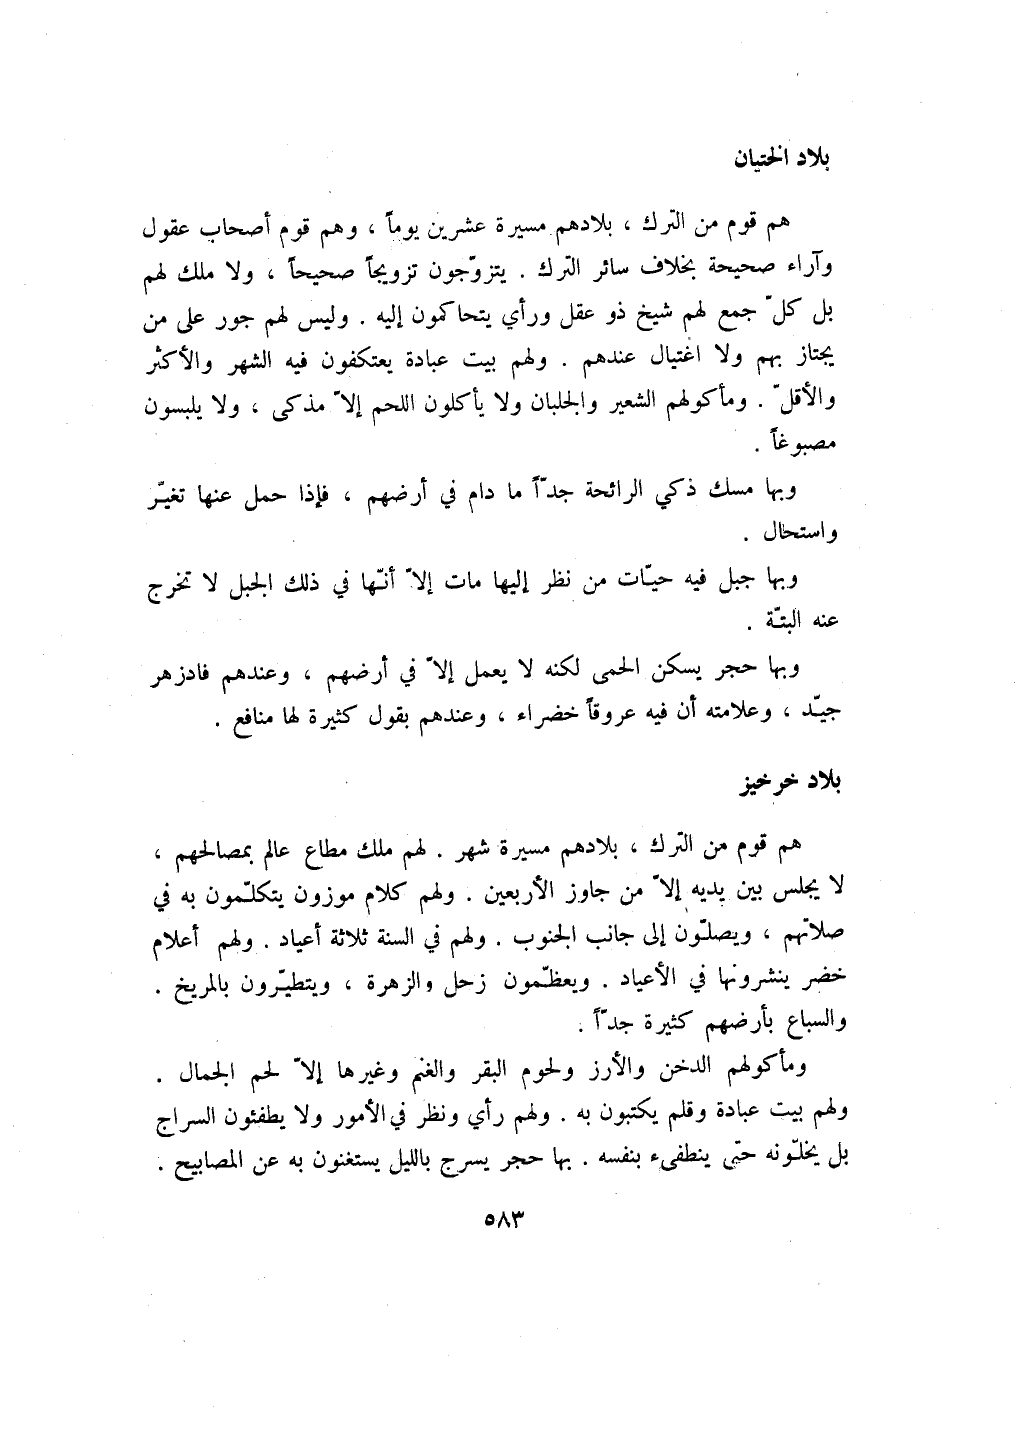 بلاد الختيان
هم قوم من الترك ، بلادهم مسيرة عشرين يوماً ، وهم قوم أصحاب عقول
وآراء صحيحة بخلاف سائر الترك . يتزوّجون تزويجاً صحيحاً ، ولا ملك لهم
بل كلّ جمع لهم شيخ ذو عقل ورأي يتحاكمون إليه . وليس لهم جور على من
يجتاز بهم ولا اغتيال عندهم . ولهم بيت عبادة يعتكفون فيه الشهر والأكثر
والأقلّ . ومأكولهم الشعير والجلبان ولا يأكلون اللحم إلاّ مذكى ، ولا يلبسون
مصبوغاً .
وبها مسك ذكي الرائحة جدّاً ما دام في أرضهم ، فإذا حمل عنها تغيّر
واستحال .
وبها جبل فيه حيّات من نظر إليها مات إلاّ أنّها في ذلك الجبل لا تخرج
عنه البتّة .
وبها حجر يسكن الحمى لكنه لا يعمل إلاّ في أرضهم ، وعندهم فادزهر
جيّد ، وعلامته أن فيه عروقاً خضراء ، وعندهم بقول كثيرة لها منافع .
بلاد خرخيز
هم قوم من الترك ، بلادهم مسيرة شهر . لهم ملك مطاع عالم بمصالحهم ،
لا يجلس بين يديه إلاّ من جاوز الأربعين . ولهم كلام موزون يتكلّمون به في
صلاتهم ، ويصلّون إلى جانب الجنوب . ولهم في السنة ثلاثة أعياد . ولهم أعلام
خضر ينشرونها في الأعياد . ويعظّمون زحل والزهرة ، ويتطيّرون بالمريخ .
والسباع بأرضهم كثيرة جدّاً .
ومأكولهم الدخن والأرز ولحوم البقر والغنم وغيرها إلاّ لحم الجمال .
ولهم بيت عبادة وقلم يكتبون به . ولهم رأي ونظر في الأمور ولا يطفئون السراج
بل يخلّونه حتّى ينطفىء بنفسه . بها حجر يسرج بالليل يستغنون به عن المصابيح .
٥٨٣